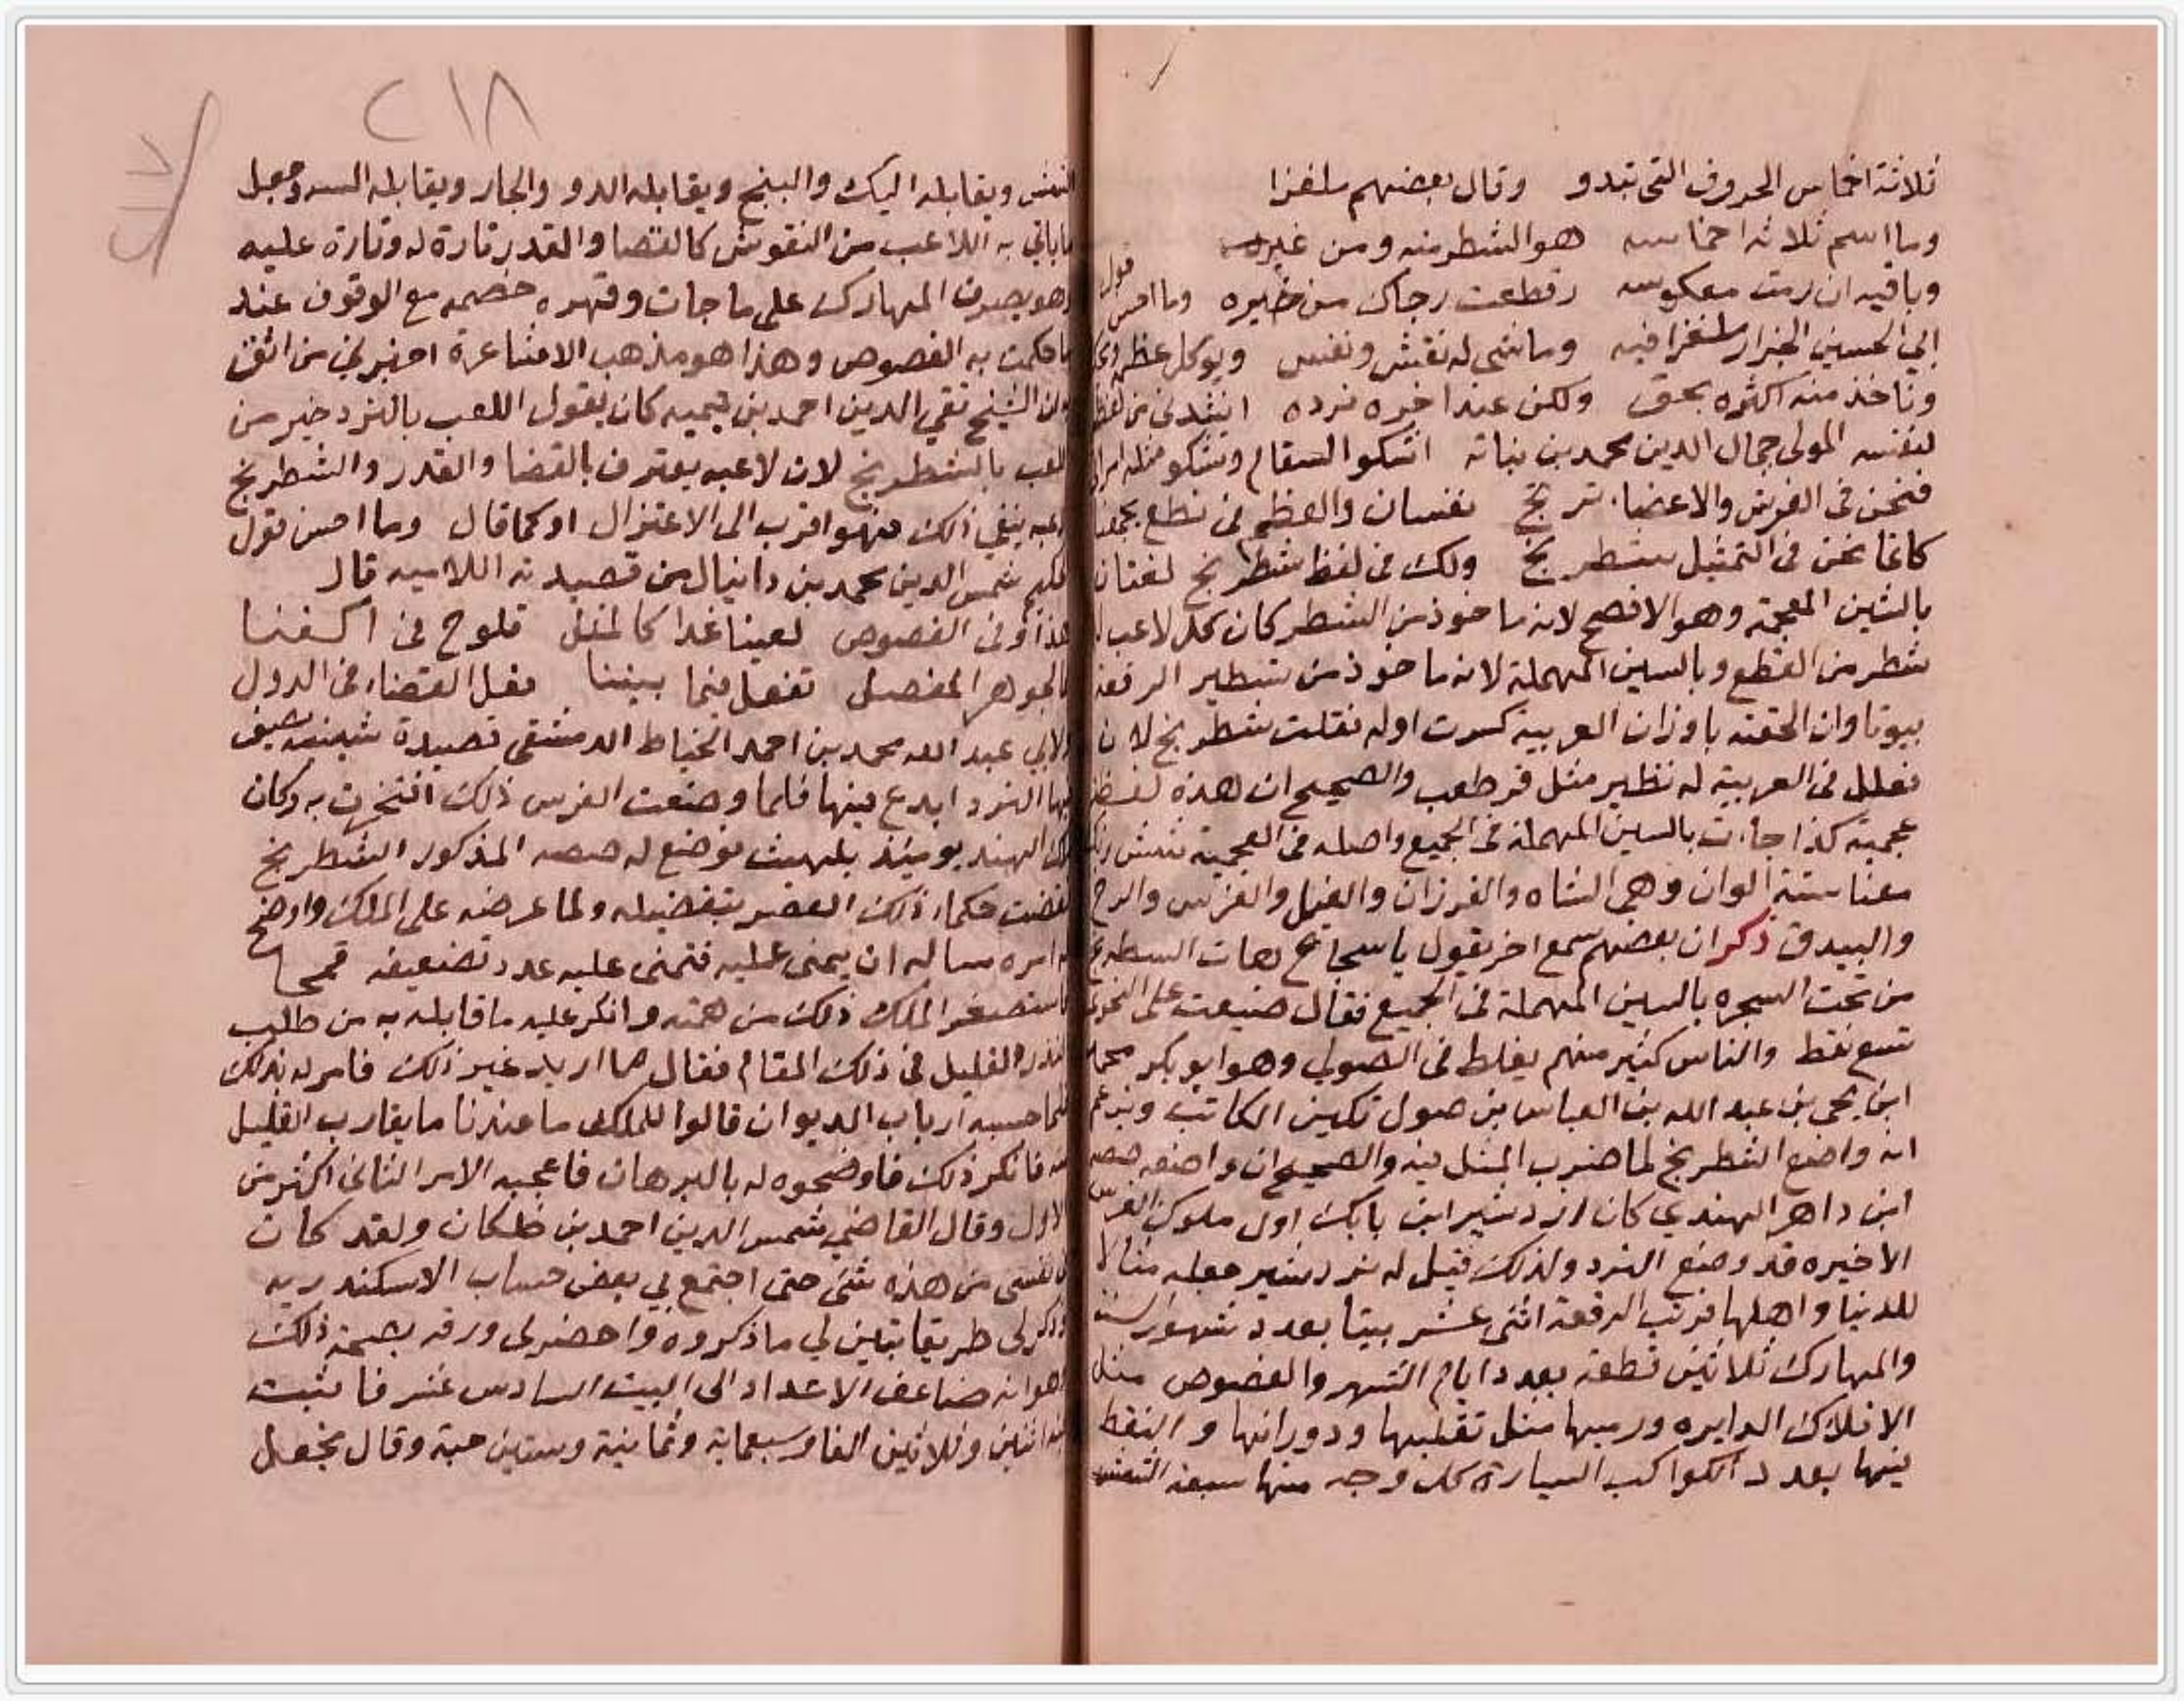 ثلاثة اخماس الحروف التى تبدو وقال بعضهم ملغزا
وما اسم ثلاثة اخماسه هو الشطر منه ومن غيره
وباقيه ان رمت معكوسه قطعت رجاك من خيره وما احسن قول
ابي الحسين الجزار ملغزا فيه وما شى له نقش ونفس ويوكل عظمه
وتاخذ منه اكثره بحق ولكن عند اخره نرده انشدنى من لفظه
لنفسه المولى جمال الدين محمد بن نباته اشكوا السقام وتشكو مثله امراتى
فنحن فى الفرش والاعضا ترتج نفسان والعظم فى نطع يجمعنا
كانما نحن فى التمثيل شطرنج ولك فى لفظ شطرنج لغتان
بالشين المعجمة وهو الافصح لانه ماخوذ من الشطر كان كل لاعب له
شطر من القطع وبالسين المهملة لانه ماخوذ من تسطير الرقعة
بيوتا وان الحقته باوزان العربية كسرت اوله فقلت شطرنج لان
فعلل فى العربية له نظير مثل قرطعب والصحيح ان هذه لفظة
عجمية كذا جاءت بالسين المهملة فى الجميع واصله فى العجمية شش رنك
معنا ستة الوان وهى الشاه والفرزان والفيل والفرس والرخ
والبيدق ذكر ان بعضهم سمع اخر يقول يا سجاع هات السطرنج
من تحت السجره بالسين المهملة فى الجميع فقال ضيعت على النحوى
تسع نقط والناس كثير منهم يغلط فى الصولي وهو ابو بكر محمد
ابن يحى بن عبد الله بن العباس بن صول تكين الكاتب ويزعم
انه واضع الشطرنج لما ضرب المثل فيه والصحيح ان واضعه صصه
ابن داهر الهندي كان ازدشير ابن بابك اول ملوك الفرس
الاخيره قد وضع النرد ولذلك قيل له نردشير جعله مثالا
للدنيا واهلها فرتب الرقعة اثنى عشر بيتا بعدد شهور السنة
والمهارك ثلاثين قطعة بعدد ايام الشهر والفصوص مثل
الافلاك الدايره ورميها مثل تقلبها ودورانها والنقط
فيها بعدد الكواكب السيارة كل وجه منها سبعة الشش
٢١٨
ويقابله اليك والبنج ويقابله الدو والجار ويقابله السه وجعل
ما ياتي به اللاعب من النقوش كالقضا والقدر تارة له وتارة عليه
وهو يصرف المهارك على ما جات وقهره خصمه مع الوقوف عند
ما حكمت به الفصوص وهذا هو مذهب الاشاعرة اخبرنى من اثق
ان الشيخ تقي الدين احمد بن تيميه كان يقول اللعب بالنرد خير من
اللعب بالشطرنج لان لاعبه يعترف بالقضا والقدر والشطرنج
لاعبه ينفي ذلك فهو اقرب الى الاعتزال او كما قال وما احسن قول
الحكيم شمس الدين محمد بن دانيال من قصيدته اللاميه قال
هذا وفى الفصوص لعبنا غدا كالمثل تلوح فى اكفنا
كالجوهر المفصل تفعل فيما بيننا فعل القضاء فى الدول
ولابي عبد الله محمد بن احمد الخياط الدمشقى قصيدة شينيه يصف
فيها النرد ابدع فيها فلما وضعت الفرس ذلك افتخرت به وكان
ملك الهند يوميئذ بلهيث فوضع له صصه المذكور الشطرنج
فقضت حكماء ذلك العصر بتفضيله ولما عرضه على الملك واوضح
له امره ساله ان يتمنى عليه فتمنى عليه عدد تضعيفه قمحا
فاستصغر الملك ذلك من همته وانكر عليه ما قابله به من طلب
النذر القليل فى ذلك المقام فقال ما اريد غير ذلك فامر له بذلك
فلما حسبه ارباب الديوان قالوا للملك ما عندنا ما يقارب القليل
منه فانكر ذلك فاوضحوه له بالبرهان فاعجبه الامر الثانى اكثر من
الاول وقال القاضي شمس الدين احمد بن خلكان ولقد كان
فى نفسى من هذه شئ حتى اجتمع بي بعض حساب الاسكندريه
وذكر لى طريقا تبين لي ما ذكروه واحضر لى ورقه بصحة ذلك
وهو انه ضاعف الاعداد الى البيت السادس عشر فاثبت
فيه اثنين وثلاثين الفا وسبعماية وثمانية وستين حبة وقال نجعل